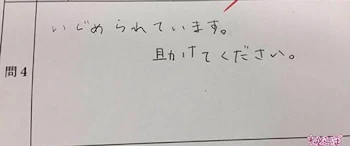 いじめられています。
助けてください。
問4